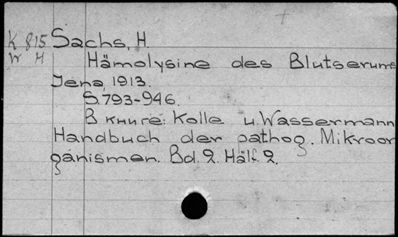 K 815 Sachs, H.
W H Hämolysine des Blutserums
Jena, 1913.
S. 793-946.
В книге: Kolle u. Wassermann
Handbuch der pathog. Mikroor
ganismen. Bd. 2. Hälf. 2.